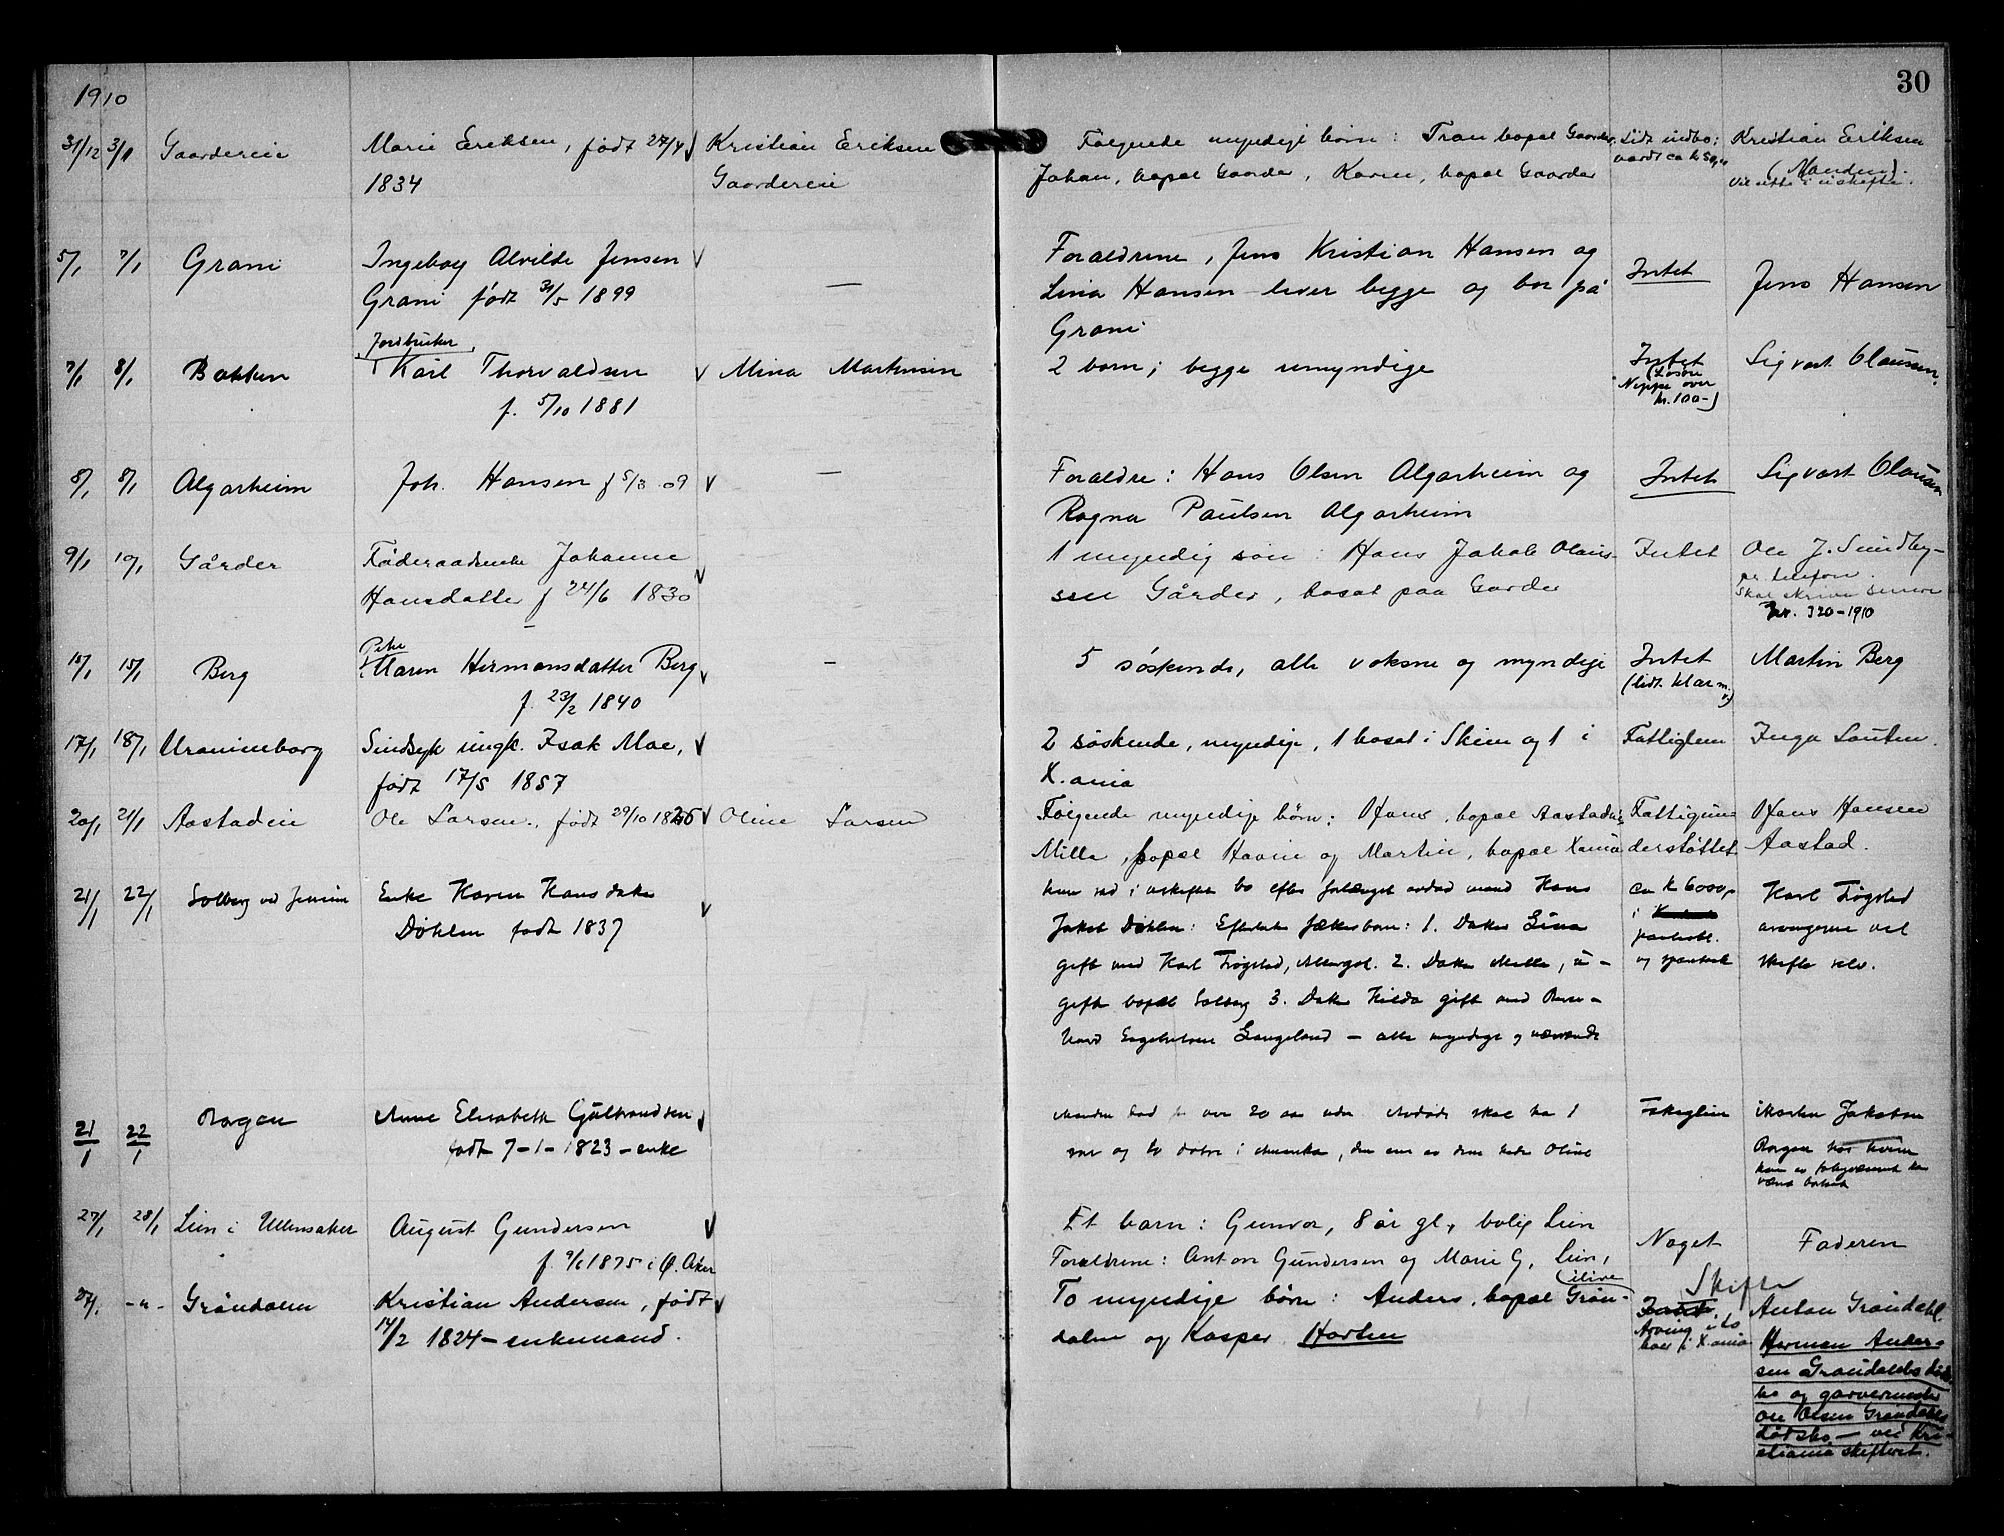 1910
30
31/12 3/1 Gaardereie Marie Eriksen, født 27/4 Kristian Eriksen Følgende myndige børn: Tran bopæl Gaarder, Lidt indbo: Kristian Eriksen
1834 Gaardereie Johan, bopæl Gaarder, Karen, bopæl Gaarder værdt ca k 50,- (Manden).
Vil sitte i uskifte.
5/1 7/1 Grani Ingeborg Alvilde Jensen — Forældrene, Jens Kristian Hansen og Intet Jens Hansen
Grani født 31/5 1899 Lina Hansen lever begge og bor på
Grani
Jordbruker
7/1 8/1 Bakken Karl Thorvaldsen Mina Martinsen 2 barn; begge umyndige Intet Sigvart Clausen.
f. 5/10 1881 (Løsøre
Neppe over
kr. 100-)
8/1 8/1 Algarheim Joh. Hansen f 5/3 09 — Forældre: Hans Olsen Algarheim og Intet Sigvart Clausen
Ragna Paulsen Algarheim
9/1 10/1 Gårder Føderaadsenke Johanne 1 myndig søn: Hans Jakob Olaus- Intet Ole J. Sundby-
Hansdatter f 24/6 1830 sen Gårder, bosat paa Garder pr. telefon.
Skal skrive senere
Jnr. 320-1910
Pike
15/1 15/1 Berg Maren Hermansdatter Berg — 5 søskende, alle voksne og myndige Intet Martin Berg
f. 23/2 1840 (lidt klær m. v.)
17/1 18/1 Uranienborg Sindsyk ungk. Isak Moe, 2 søskende, myndige, 1 bosat i Skien og 1 i Fattiglem Inga Lauten.
født 17/5 1857 X.ania
20/1 21/1 Aastadeie Ole Larsen, født 29/10 1825 Oline Larsen Følgende myndige børn: Hans, bopæl Aastadeie Fattigun- Hans Hansen
Mille, bopæl Hovin og Martin, bopæl Xania derstøttet Aastad.
21/1 22/1 Solberg ved Jensrum Enke Karen Hansdatter hun sad i uskiftet bo efter forlængst avdød mand Hans ca k 6000,- Karl Trøgstad
Døhlen født 1837 Jakob Døhlen: Efterlater fællesbarn: 1. Datter Lina i arvingerne vil
gift med Karl Trøgstad, 2. Datter Mille, u- pantobl. skifte selv.
gift bopæl Solberg 3. Datter Hilda gift med og sparebank
Engebretsen Langeland — alle myndige og nærværende
21/1 22/1 Borgen Anne Elisabeth Gulbrandsen Manden død for over 20 aar siden Avdøde skal ha 1 Fattiglem Jakobsen
født 7-1-1823 - enke søn og to døtre i Amerika, den ene av dem heder Oline Borgen hos hvem
hun av fattigvæsenet har
været bortsat
27/1 28/1 Lien i Ullensaker August Gundersen Et barn: Gunvor, 8 år gl., bolig Lien Noget Faderen
f. 9/6 1875 i Ø. Aker Forældrene: Anton Gundersen og Marie G, Lien,
ilive Skifte
27/1 -"- Grøndalen Kristian Andersen, født To myndige børn: Anders, bopæl Grøn- Intet Anton Grøndahl.
14/2 1824 - enkemand. dalen og Kasper Horten Arving i to Herman Ander-
boer i X.ania sen Grøndahls døds-
bo og garvermester
Ole Olsen Grøndahls
dødsbo — ved Kri-
stiania skifteret.